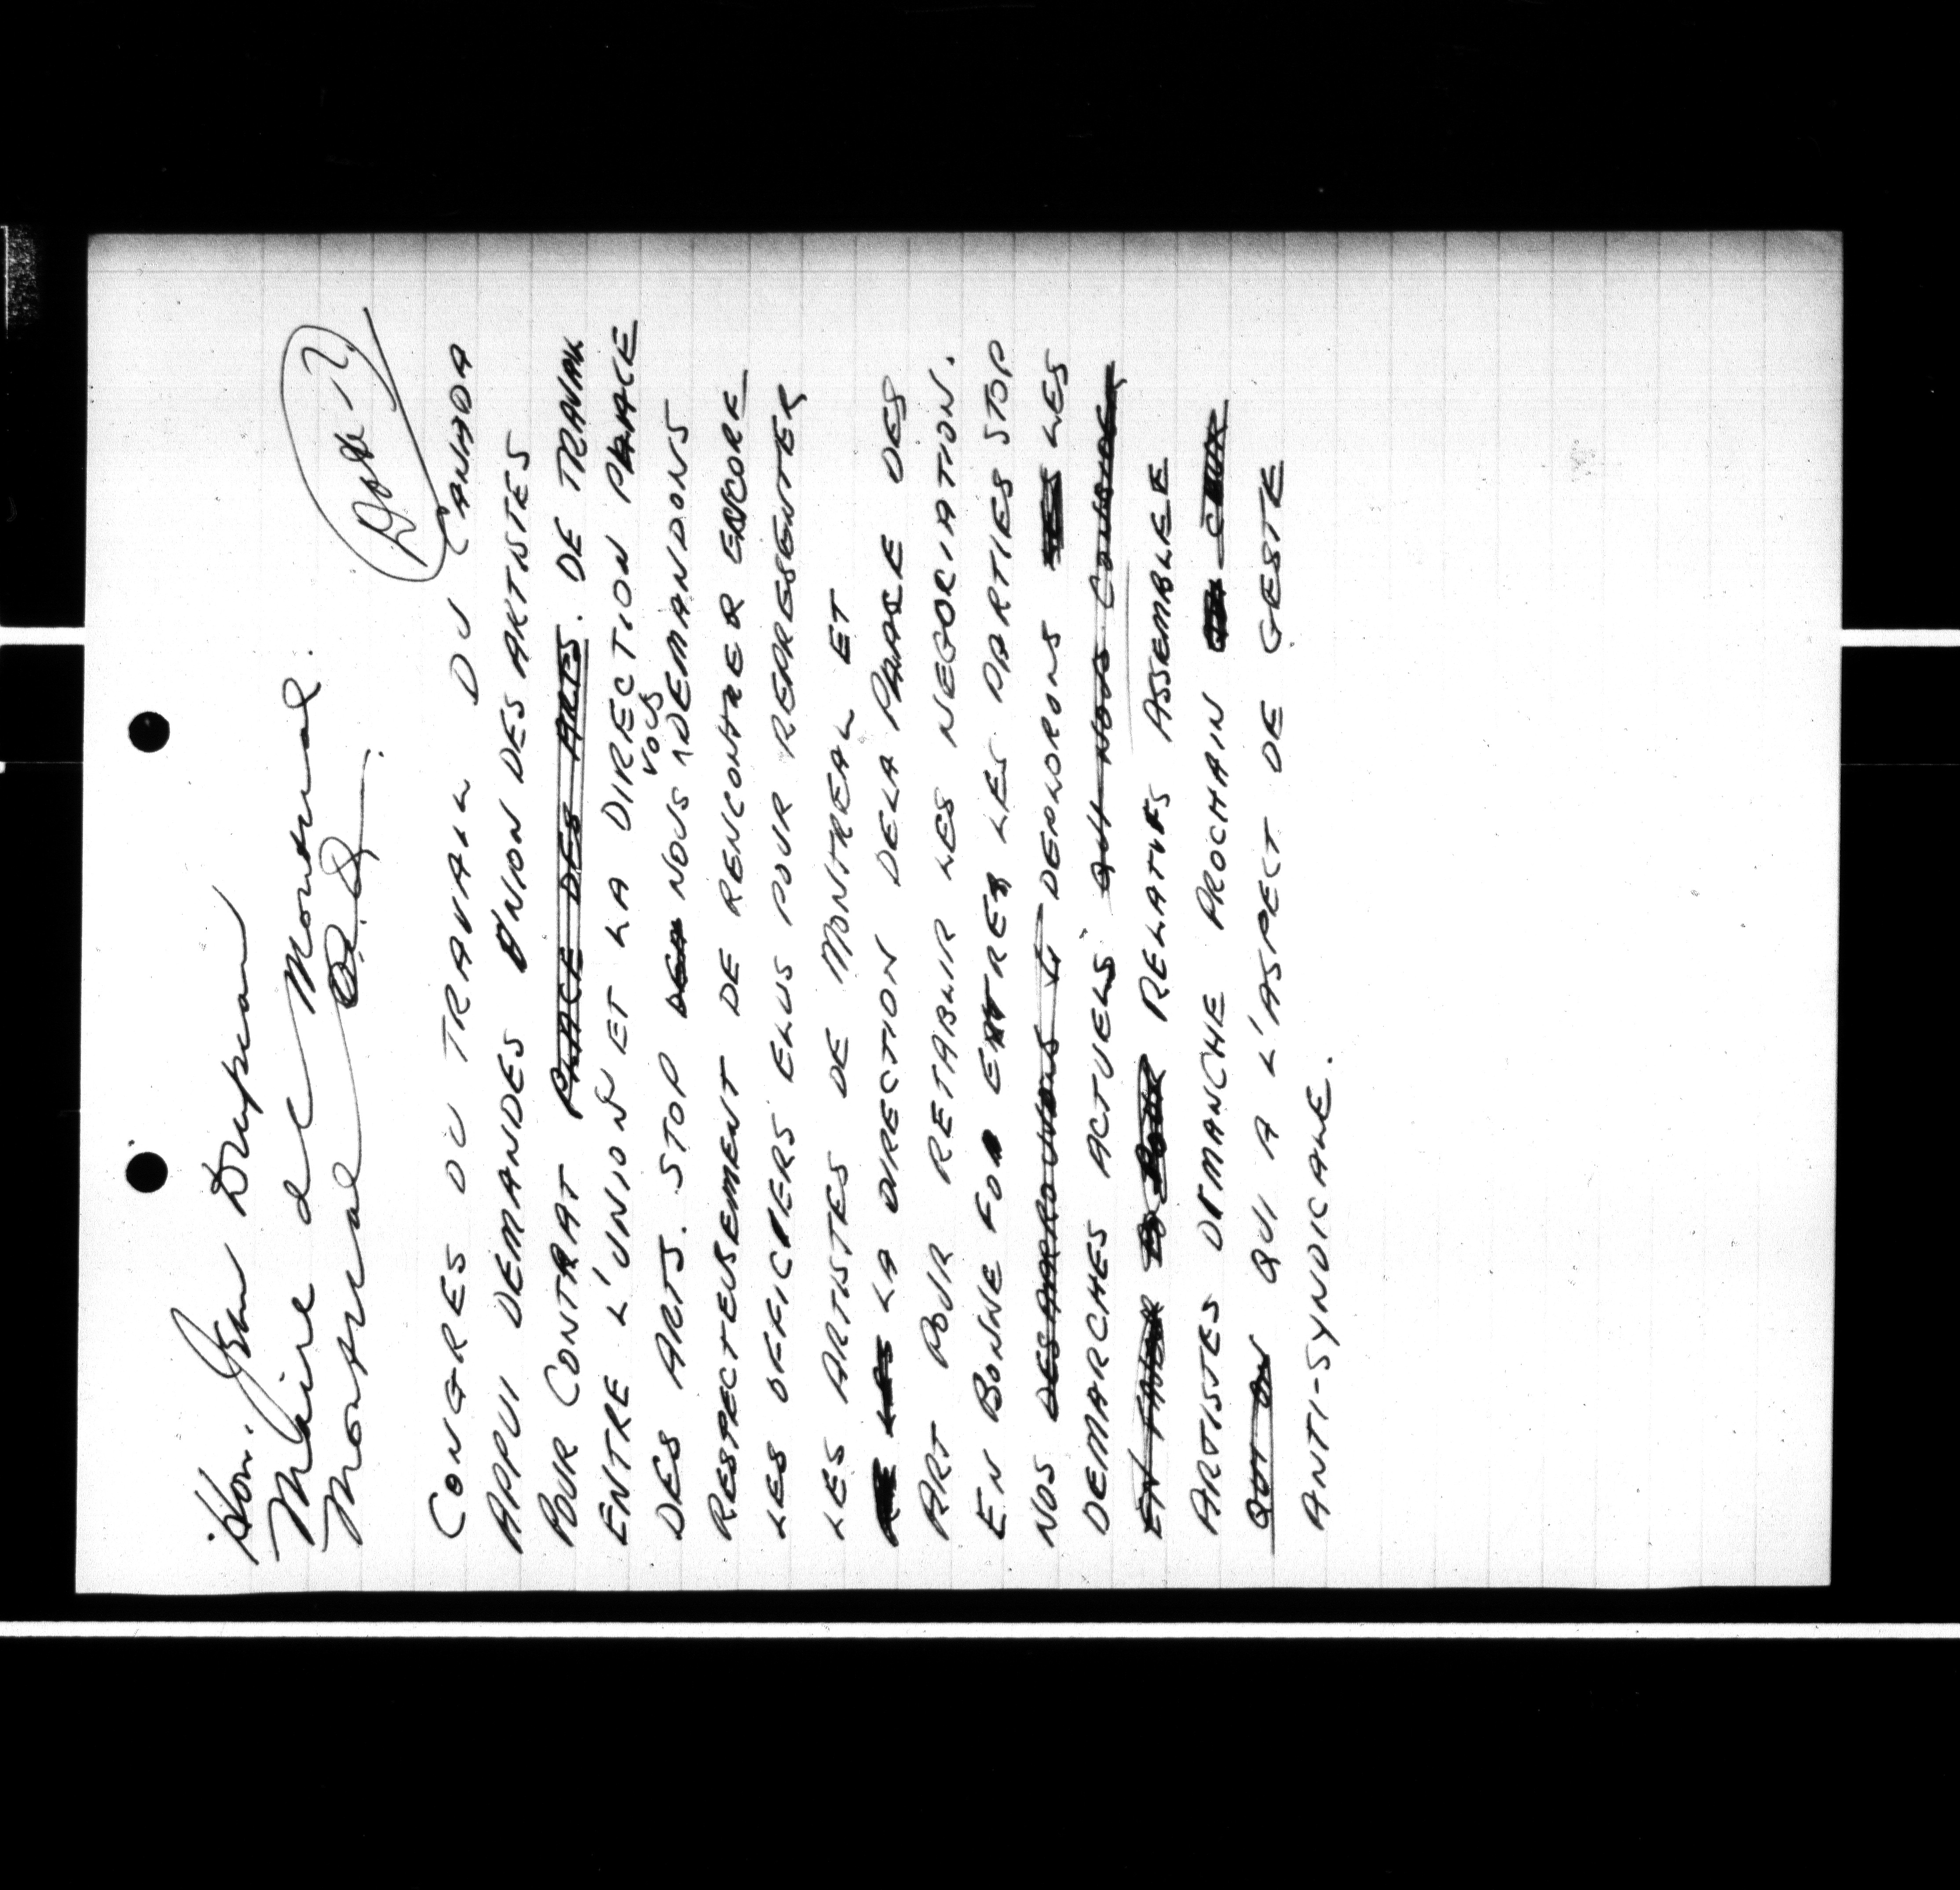 Hon. Jean Drapeau
Maire de Montreal.
Montreal P.Q.
CONGRES DU TRAVAIL DU CANADA
APPUI DEMANDES UNION DES ARTISTES
POUR CONTRAT PLACE DES ARTS. DE TRAVAIL
ENTRE L'UNION ET LA DIRECTION PLACE
DES ARTS. STOP NOUS VOUS DEMANDONS
RESPECTEUSEMENT DE RENCONTRER ENCORE
LES OFFICIERS ELUS POUR REPRESENTER
LES ARTISTES DE MONTREAL ET
LES LA DIRECTION DE LA PLACE DES
ART POUR RETABLIR LES NEGOCIATION.
EN BONNE FOI ENTRE LES PARTIES STOP
NOS DESAPROUVONS DEPLORONS LES LES
DEMARCHES ACTUELS QUI NOUS
RELATIVES ASSEMBLEE
ARTISTES DIMANCHE PROCHAIN
QUI ON QUI A L'ASPECT DE GESTE
ANTI-SYNDICALE.